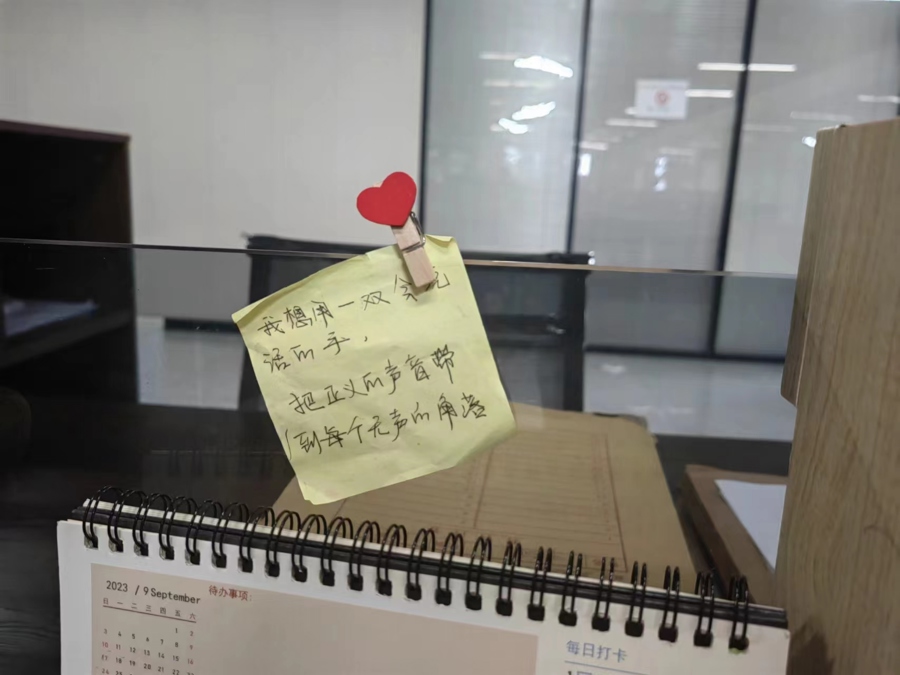 我想用一双会说
话的手，
把正义的声音带
到每个无声的角落
2023 / 9 September
待办事项:
日 一 二 三 四 五 六
1 2
3 4 5 6 7 8 9
10 11 12 13 14 15 16
17 18 19 20 21 22 23
每日打卡